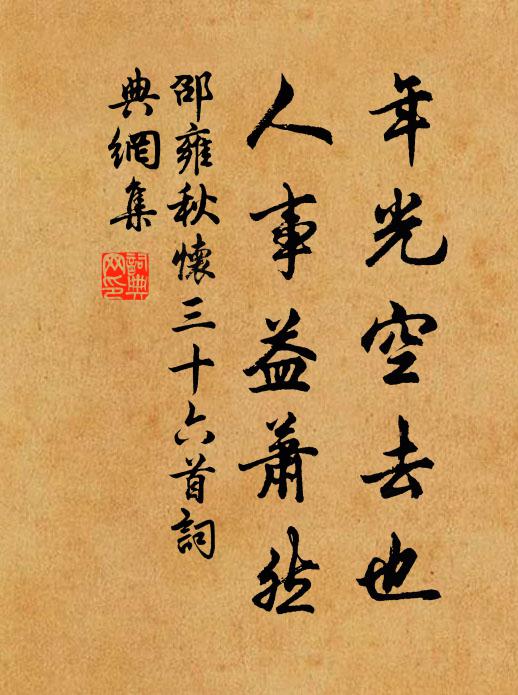 年光空去也
人事益蕭然
邵雍秋懷三十六首詞
典網集
詞典網印